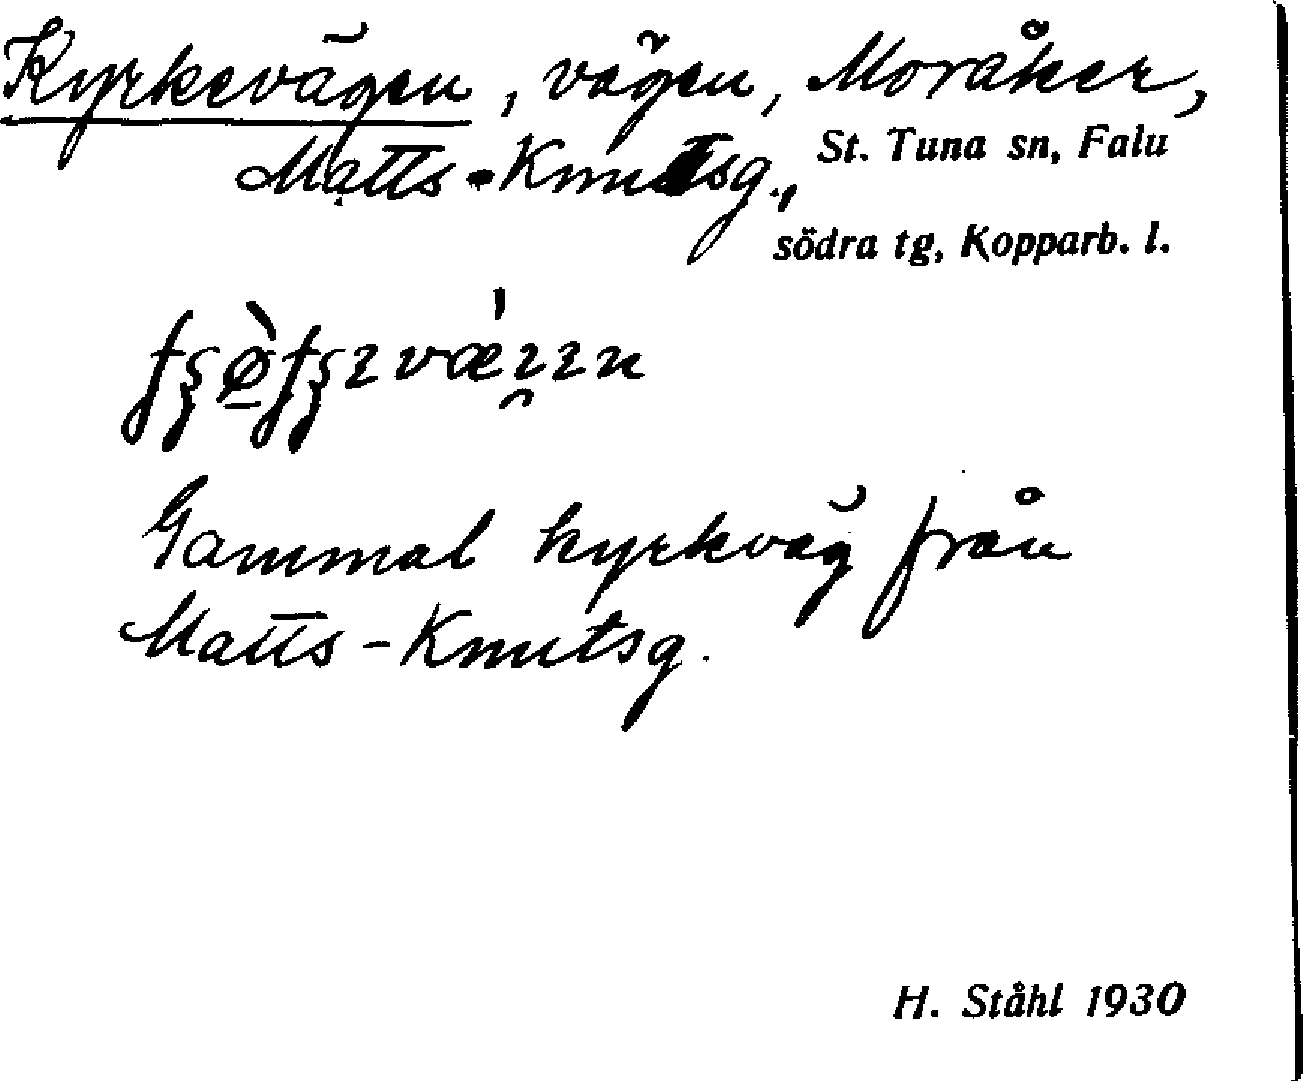 Kyrkevägen, vägen, Moråker,
Matts-Knutsg., St. Tuna sn, Falu
södra tg, Kopparb. l.
Gammal kyrkväg från
Matts-Knutsg.
H. Ståhl 1930